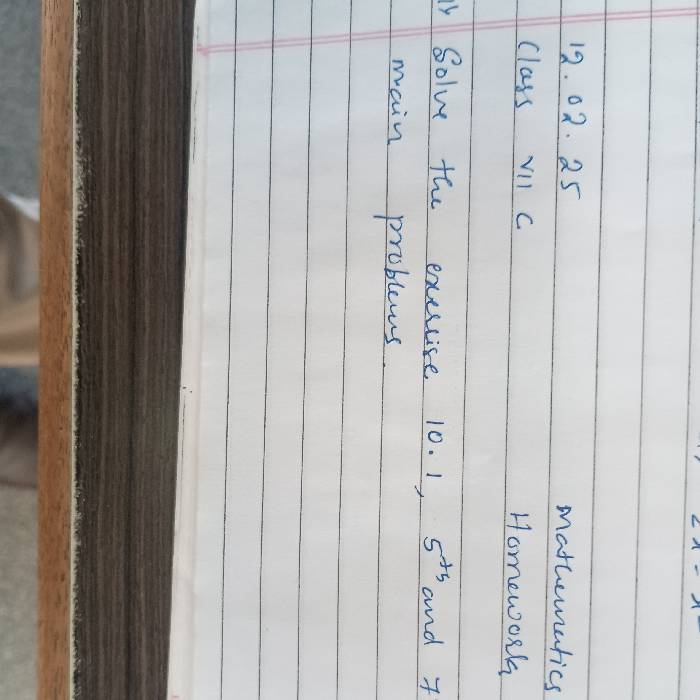 12.02.25 Mathematics
Class VII C Homework
Solve the exercise 10.1, 5th and 7
main problems